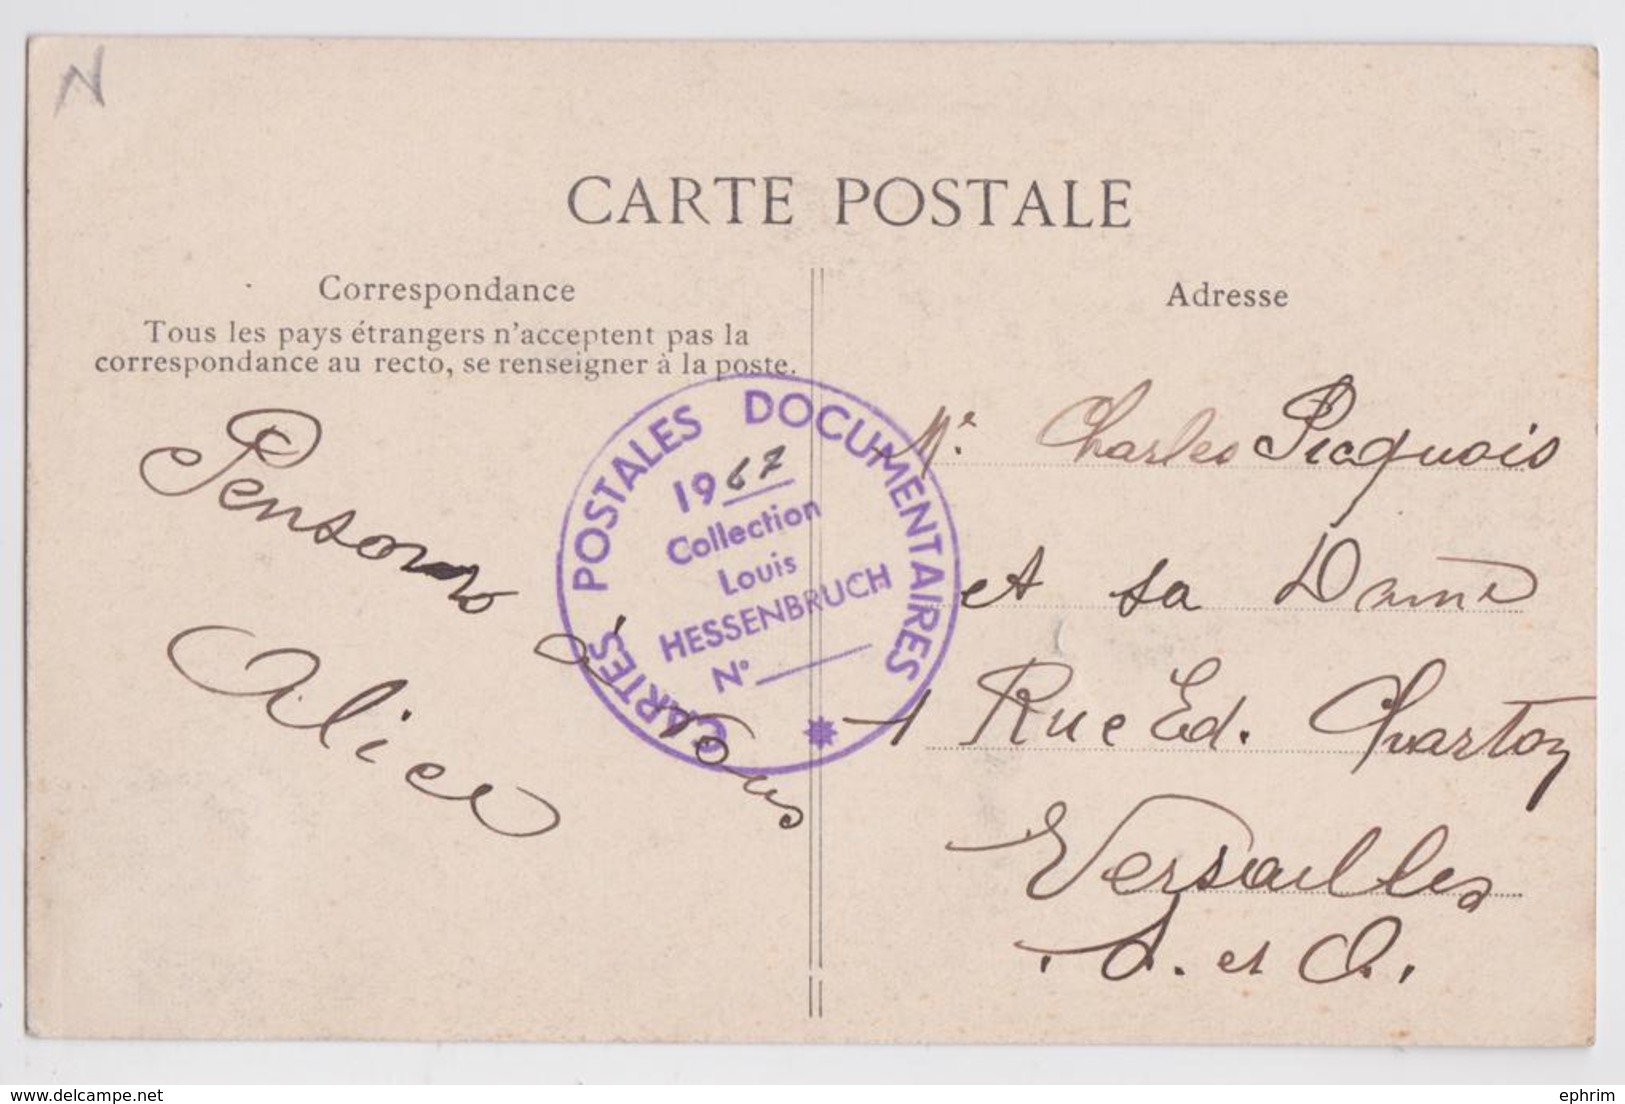 N
CARTE POSTALE
Correspondance
Tous les pays étrangers n'acceptent pas la
correspondance au recto, se renseigner à la poste.
Pensons à vous
Alice
CARTES POSTALES DOCUMENTAIRES
1967
Collection
Louis
HESSENBRUCH
N°
Adresse
Mr. Charles Picquois
et sa Dame
1 Rue Ed. Charton
Versailles
S. et O.
delcampe.net
ephrim